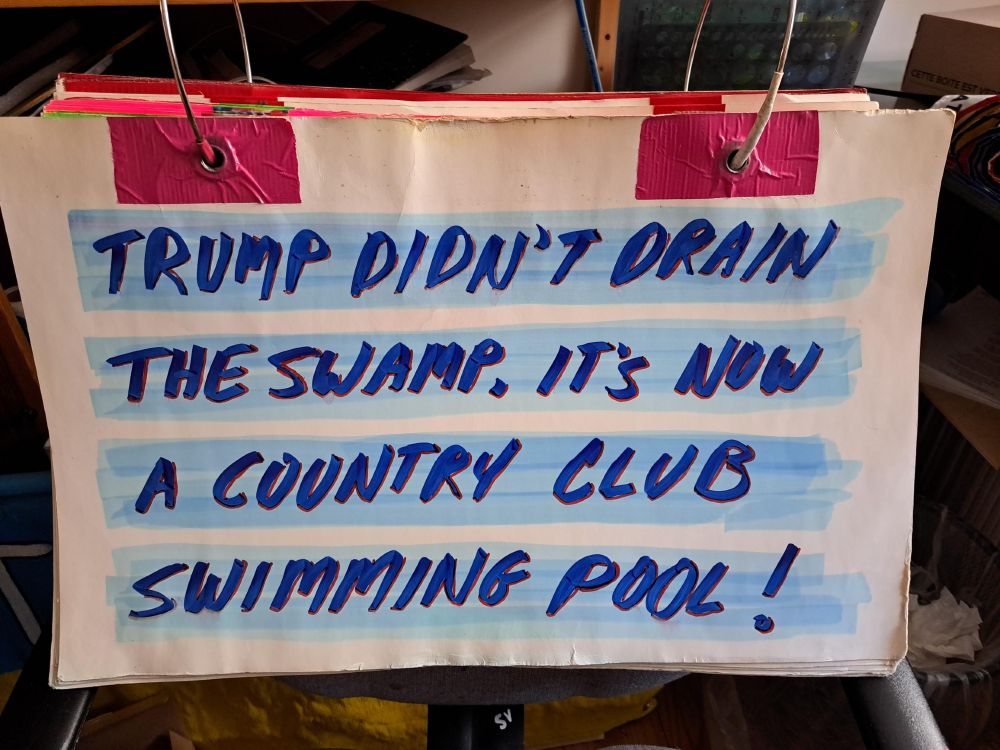 CETTE BOITE EST
TRUMP DIDN'T DRAIN
THE SWAMP. IT'S NOW
A COUNTRY CLUB
SWIMMING POOL!
SV